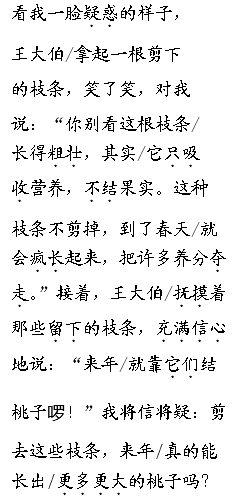 看我一脸疑惑的样子，
王大伯/拿起一根剪下
的枝条，笑了笑，对我
说：“你别看这根枝条/
长得粗壮，其实/它只吸
收营养，不结果实。这种
枝条不剪掉，到了春天/就
会疯长起来，把许多养分夺
走。”接着，王大伯/抚摸着
那些留下的枝条，充满信心
地说：“来年/就靠它们结
桃子啰！”我将信将疑：剪
去这些枝条，来年/真的能
长出/更多更大的桃子吗？